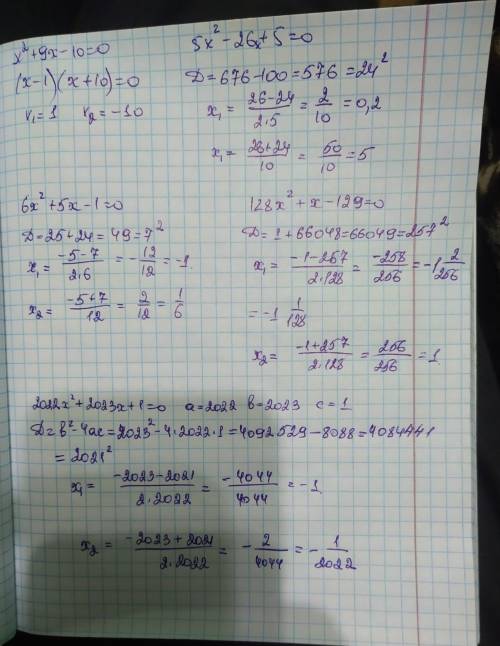 x²+9x-10=0
(x-1)(x+10)=0
x₁=1 x₂=-10
5x²-26x+5=0
D=676-100=576=24²
x₁ = (26-24)/(2·5) = 2/10 = 0,2
x₁ = (26+24)/10 = 50/10 = 5
6x²+5x-1=0
D=25+24=49=7²
x₁ = (-5-7)/(2·6) = -12/12 = -1.
x₂ = (-5+7)/12 = 2/12 = 1/6
128x²+x-129=0
D=1+66048=66049=257²
x₁ = (-1-257)/(2·128) = -258/256 = -1 2/256
= -1 1/128
x₂ = (-1+257)/(2·128) = 256/256 = 1.
2022x²+2023x+1=0 a=2022 b=2023 c=1
D=b²-4ac=2023²-4·2022·1=4092529-8088=4084441
= 2021²
x₁ = (-2023-2021)/(2·2022) = -4044/4044 = -1.
x₂ = (-2023+2021)/(2·2022) = -2/4044 = -1/2022